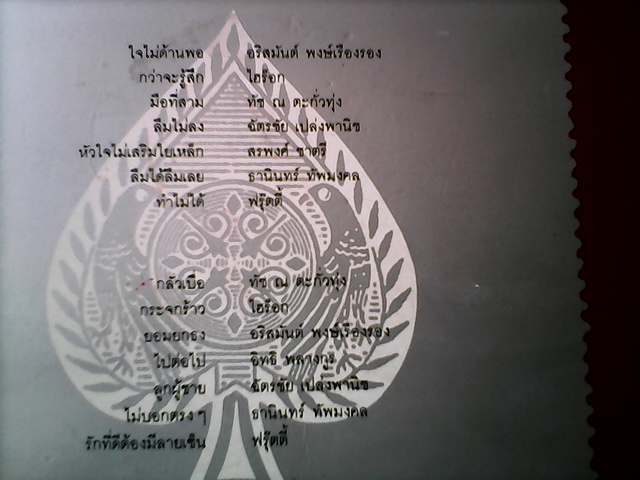 ใจไม่ด้านพอ อริสมันต์ พงษ์เรืองรอง
กว่าจะรู้สึก ไฮร็อก
มือที่สาม ทัช ณ ตะกั่วทุ่ง
ลืมไม่ลง ฉัตรชัย เปล่งพานิช
หัวใจไม่เสริมใยเหล็ก สรพงศ์ ชาตรี
ลืมได้ลืมเลย ธานินทร์ ทัพมงคล
ทำไม่ได้ ฟรุ๊ตตี้
กลัวเบื่อ ทัช ณ ตะกั่วทุ่ง
กระจกร้าว ไฮร็อก
ยอมยกธง อริสมันต์ พงษ์เรืองรอง
ไปต่อไป อิทธิ พลางกูร
ลูกผู้ชาย ฉัตรชัย เปล่งพานิช
ไม่บอกตรง ๆ ธานินทร์ ทัพมงคล
รักที่ดีต้องมีลายเซ็น ฟรุ๊ตตี้